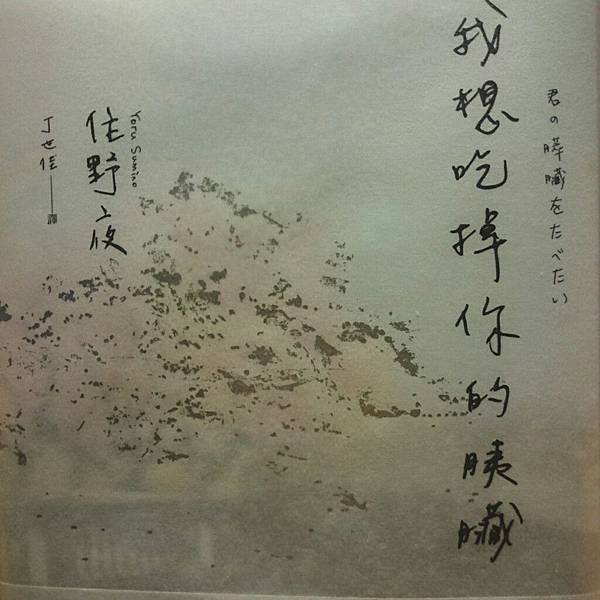 君の膵臓をたべたい
我想吃掉你的胰臟
Yoru Sumino
住野夜
丁世佳